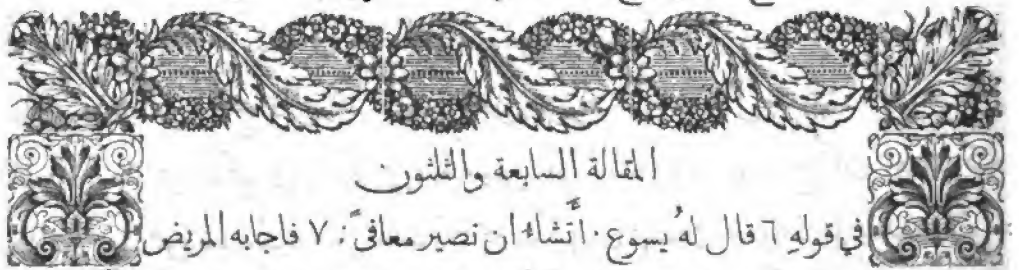 المقالة السابعة والثلثون
في قولهِ ٦ قال لهُ يسوع ٠ أَتشاء ان تصير معافىً : ٧ فاجابه المريض